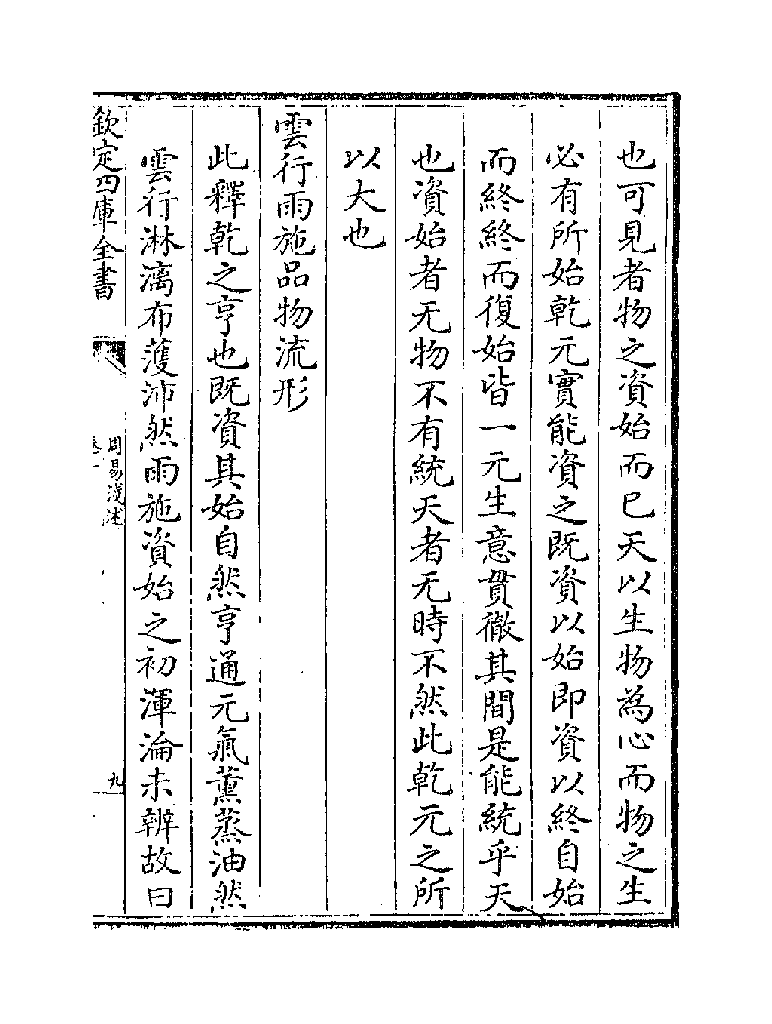 也可見者物之資始而已天以生物為心而物之生
必有所始乾元實能資之既資以始即資以終自始
而終終而復始皆一元生意貫徹其間是能統乎天
也資始者无物不有統天者无時不然此乾元之所
以大也
雲行雨施品物流形
此釋乾之亨也既資其始自然亨通元氣薰蒸油然
雲行淋漓布濩沛然雨施資始之初渾淪未辨故曰
欽定四庫全書
周易淺述
卷一
九